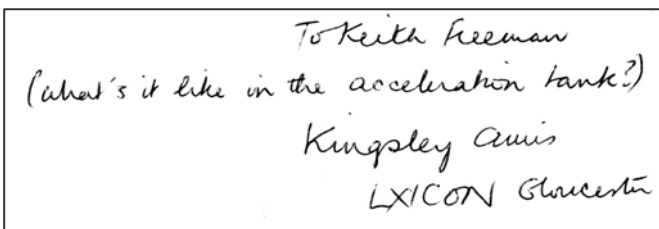 To Keith Freeman
(what's it like in the acceleration tank?)
Kingsley Amis
LXICON Gloucester